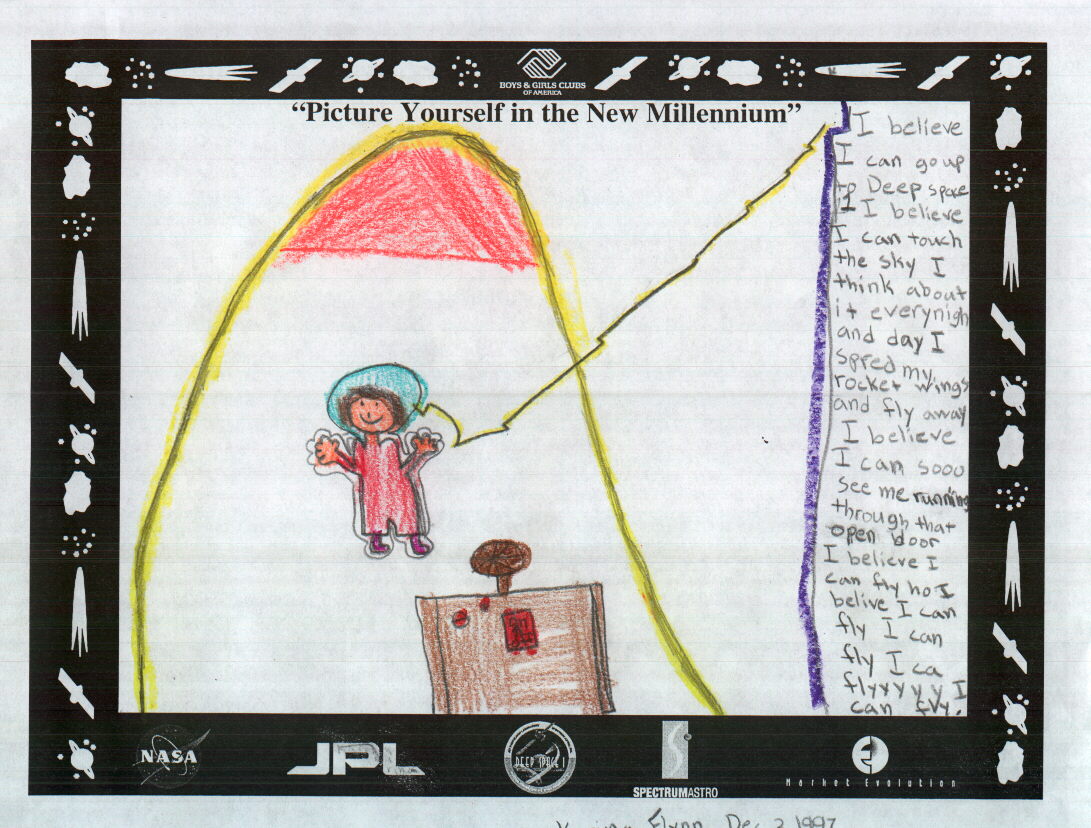 BOYS & GIRLS CLUBS
OF AMERICA
“Picture Yourself in the New Millennium”
I believe
I can go up
to Deep space
1 I believe
I can touch
the sky I
think about
it everynigh
and day I
spred my
rocket wings
and fly away
I believe
I can sooo
see me running
through that
open door
I believe I
can fly ho I
belive I can
fly I can
fly I ca
flyyyyy I
can fly.
NASA
JPL
DEEP SPACE 1
SPECTRUMASTRO
Market Evolution
Flynn Dec 2 1997